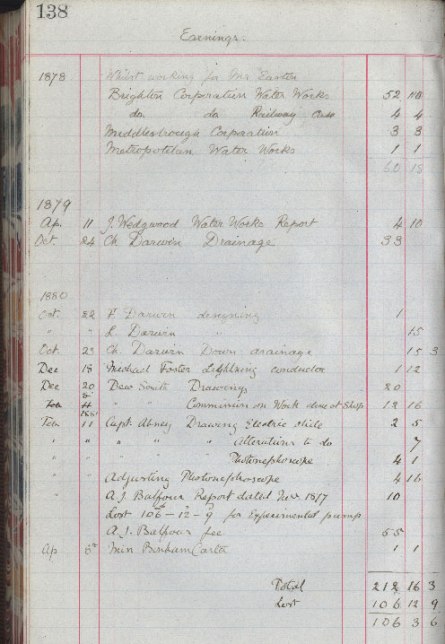 138
Earnings.
1878 Whilst working for Mr Easton
Brighton Corporation Water Works 52 10
do do Railway Case 4 4
Middlesbrough Corporation 3 3
Metropolitan Water Works 1 1
60 18
1879
Ap. 11 J. Wedgwood Water Works Report 4 10
Oct. 24 Ch. Darwin Drainage 33
1880
Oct. 22 F. Darwin designing 1
" " L. Darwin " 15
Oct. 23 Ch. Darwin Down drainage 15 3
Dec 18 Michael Foster Lightning conductor 1 12
Dec 20 Dew Smith Drawings 20
" " Commission on Work done at Shop 12 16
1881
Feb 11 Capt. Abney Drawing Electric slide 2 5
" " " " " Alterations to do 7
" " Photonephoscope 4 1
" Adjusting Photonephoscope 4 16
" A. J. Balfour Report dated 10
Lost 106 - 12 - 9 for Experimental pump
A. J. Balfour fee 55
Ap Miss Bonham Carter 1 1
Total 212 16 3
Lost 106 12 9
106 3 6